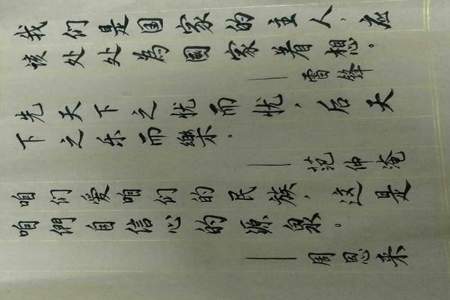 我们是国家的主人，应
该处处為國家着想。
——雷锋
先天下之忧而忧，后天
下之乐而樂。
——范仲淹
咱们爱咱们的民族，这是
咱們自信心的源泉。
——周恩来